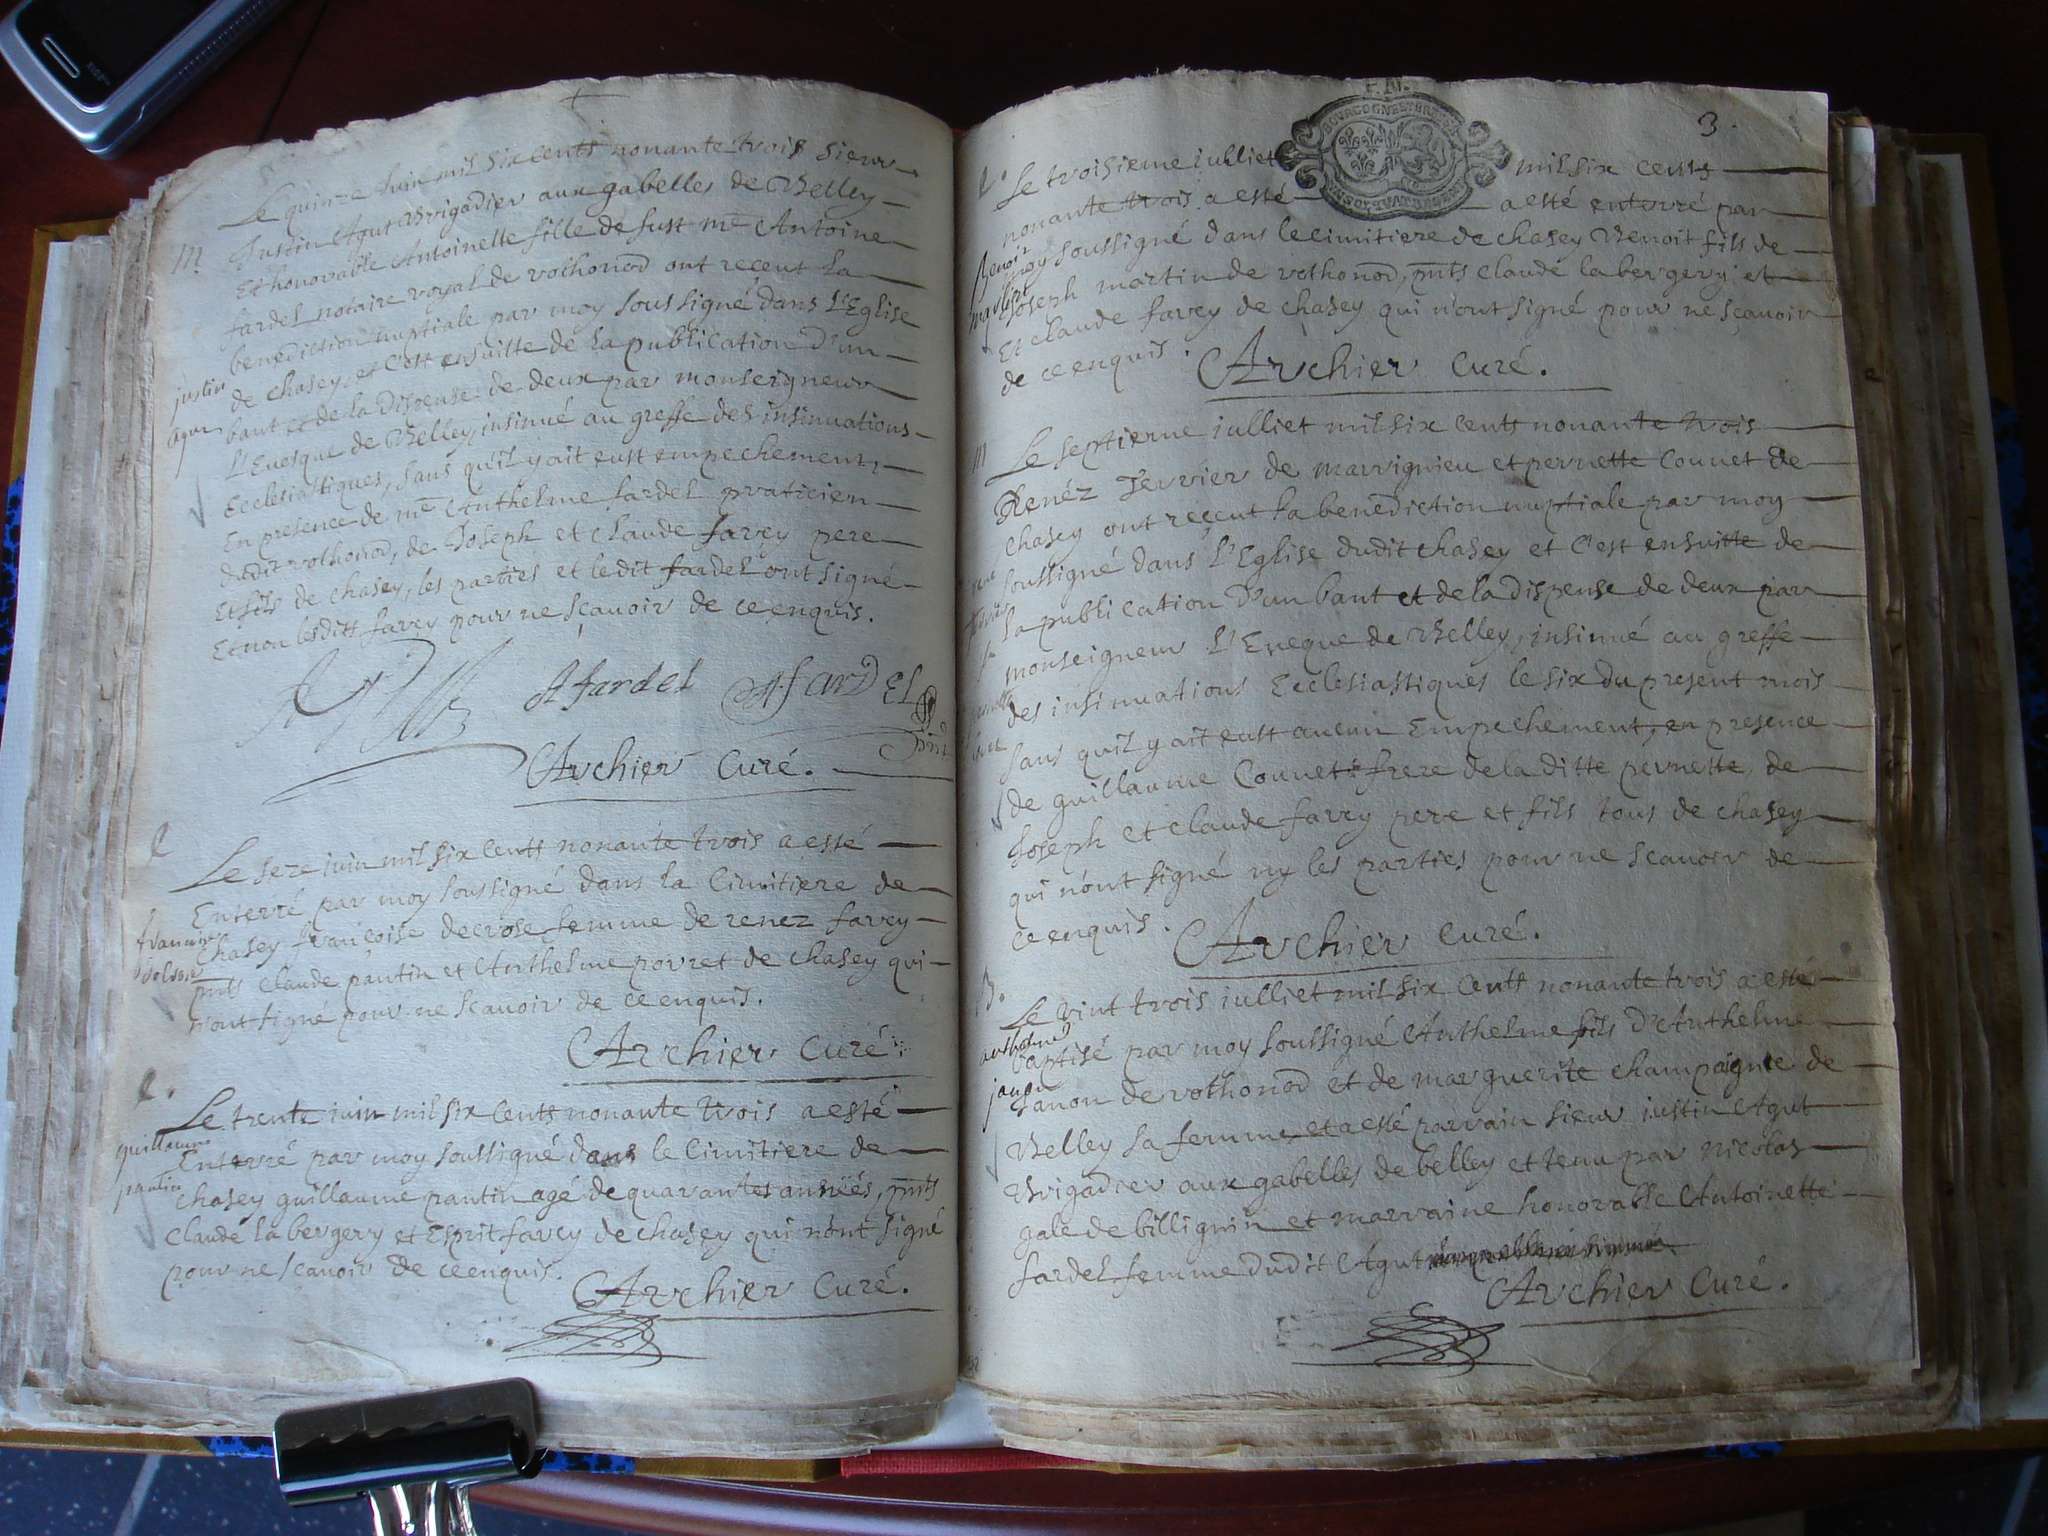 Le quinze Juin mil six cents nonante trois sieur
m Justin Agut Brigadier aux gabelles de Belley
Et honorable Antoinette fille de fust me Antoine
fardel notaire royal de vothonod ont reçeut la
benediction nuptiale par moy soussigné dans L'Eglise
justin de chasey, et c'est ensuitte de la publication d'un
agut bant et de la dispense de deux par monseigneur
L'Evesque de Belley, insinué au greffe des insinuations
Ecclesiastiques, sans qu'il y ait eust empechement,
En presence de me Anthelme fardel praticien
dudit vothonod, de Joseph et claude favey pere
Et fils de chasey, les parties et ledit fardel ont signé
Et non lesditt favey pour ne scavoir de ce enquis.
A fardel A. farDEL
pnt
Archier Curé.
Le seze juin mil six cents nonante trois a esté
Enterré par moy soussigné dans la Cimitiere de
chasey françoise decrose femme de renez favey
pnts claude pantin et Anthelme povret de chasey qui
n'ont signé pour ne scavoir de ce enquis.
Archier Curé
Le trente juin mil six cents nonante trois a esté
guillaume Enterré par moy soussigné dans le Cimitiere de
pantin chasey guillaume pantin agé de quarantes années, pnts
claude la bergery et Esprit favey de chasey qui n'ont signé
pour ne scavoir de ce enquis.
Archier Curé.
3.
F. M.
BOURGOGNE ET BRESSE
Le troisieme iulliet mil six cents
nonante trois a esté a esté enterré par
benoit moy soussigné dans le cimitiere de chasey Benoit fils de
martin Joseph martin de vothonod, pnts claude la bergery et
Et claude favey de chasey qui n'ont signé pour ne scavoir
de ce enquis.
Archier Curé.
m Le septieme iulliet mil six cents nonante trois
Renéz Fevrier de marrignieu et pernette Counet de
chasey ont reçeut la benediction nuptiale par moy
soussigné dans L'Eglise dudit chasey et c'est ensuitte de
la publication d'un bant et de la dispense de deux par
monseigneur L'Eveque de Belley, insinué au greffe
des insinuations Ecclesiastiques le six du present mois
sans qu'il y ait eust aucun Empechement, en presence
de guillaume Counet frere de la ditte pernette, de
Joseph et claude favey pere et fils tous de chasey
qui n'ont signé ny les parties pour ne scavoir de
ce enquis.
Archier Curé.
B. Le vint trois iulliet mil six cents nonante trois a esté
anthelme baptisé par moy soussigné Anthelme fils d'Anthelme
janon Janon de vothonod et de marguerite champagne de
Belley sa femme, et a esté parrain sieur iustin Agut
Brigadier aux gabelles de belley et tenu par nicolas
gale de billignin et marraine honorable Antoinette
fardel femme dudit Agut
Archier Curé.